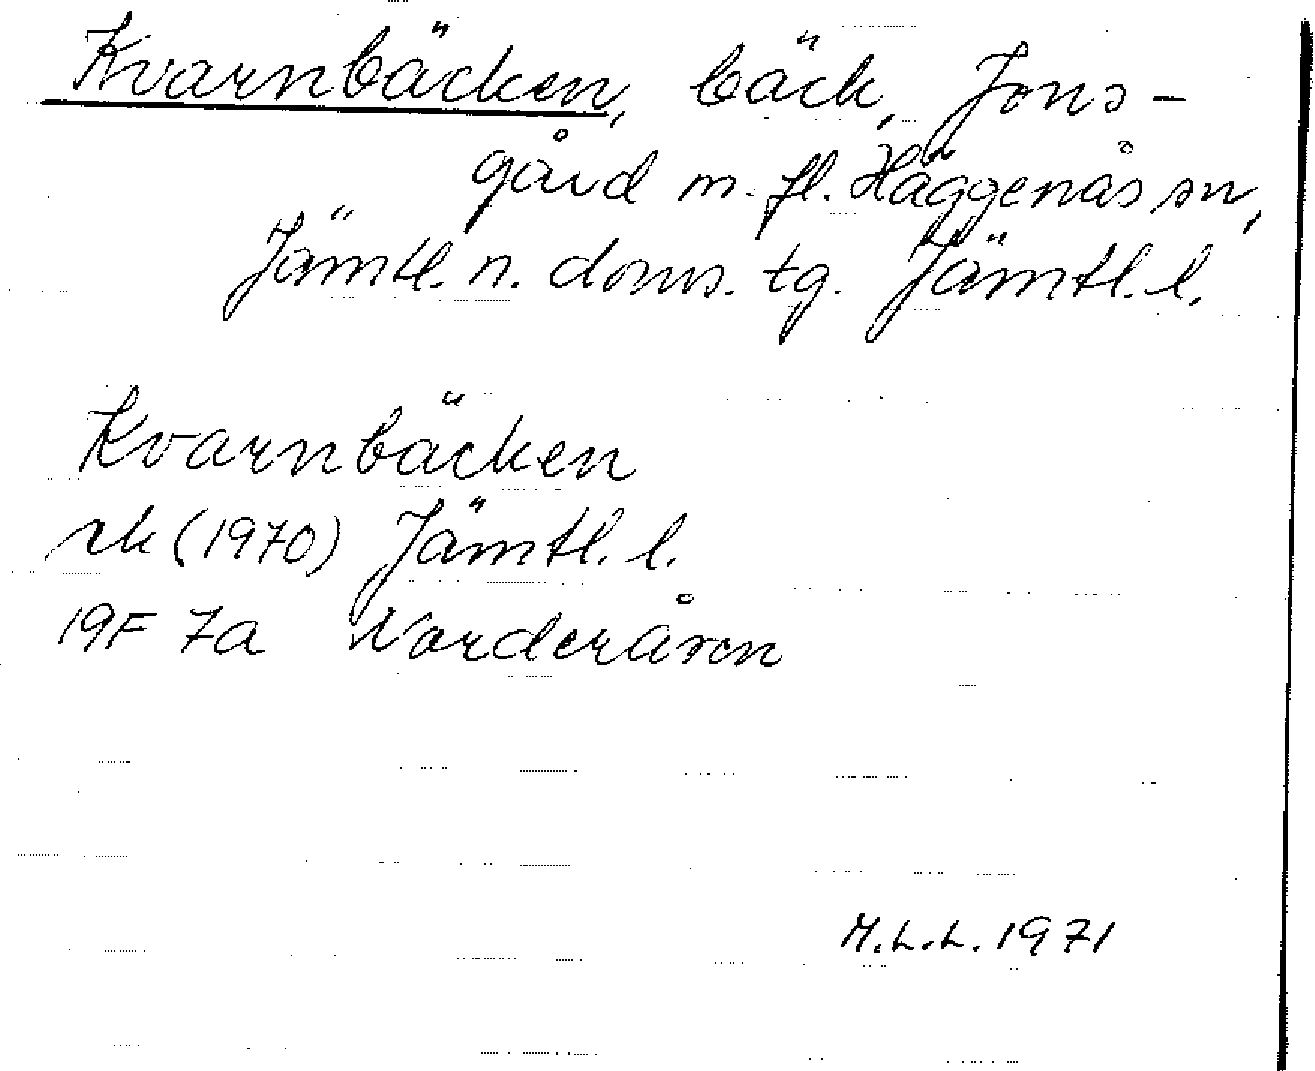 Kvarnbäcken, bäck, Jons-
gård m. fl. Häggenås sn,
Jämtl. n. doms. tg. Jämtl. l.
Kvarnbäcken
rk (1970) Jämtl. l.
19F 7a Norderåsen
M.L.L. 1971